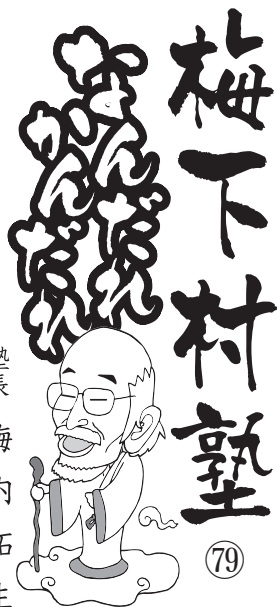 梅下村塾
㊴
なんだれ
かんだれ
塾長 梅内拓生